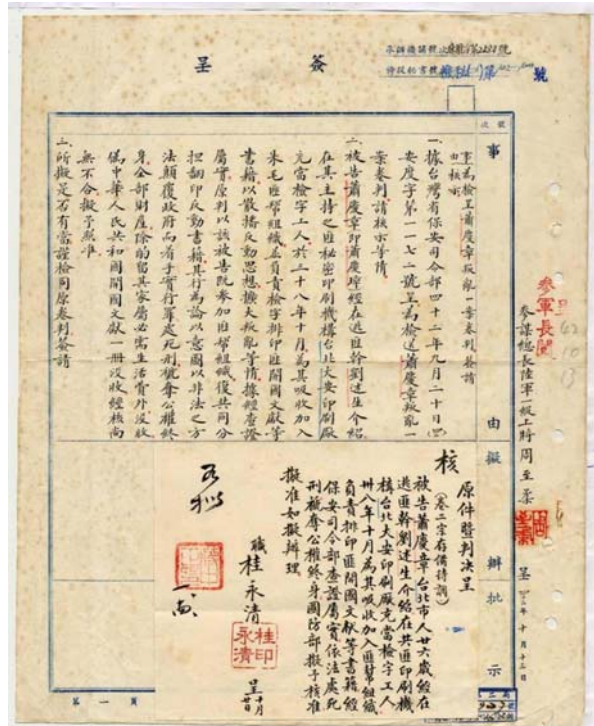 簽呈
號
事由擬辦批示
案為檢呈蕭慶章叛亂一案卷判簽請
由核示
一、據台灣省保安司令部四十二年九月二十日(42)
安度字第一一七二號呈為檢送蕭慶章叛亂一
案卷判請核示等情
二、被告蕭慶章即蕭慶璋經在逃匪幹劉述生介紹
在其主持之匪秘密印刷機構台北大安印刷廠
充當檢字工人於三十八年十月為其吸收加入
朱毛匪幫組織並負責檢字排印匪開國文獻等
書籍以散播反動思想擴大叛亂等情據經查證
屬實原判以該被告既參加匪幫組織復共同分
担翻印反動書籍其行為論以意圖以非法之方
法顛覆政府而着手實行罪處死刑褫奪公權終
身全部財產除酌留其家屬必需生活費外沒收
偽中華人民共和國開國文獻一冊沒收經核尚
無不合擬予照准
三、所擬是否有當謹檢同原卷判簽請
參軍長閱
參謀總長陸軍一級上將周至柔
呈
核
原件暨判決呈
(卷二宗存備待調)
被告蕭慶章台北市人廿六歲經在
逃匪幹劉述生介紹在共匪印刷機
構台北大安印刷廠充當檢字工人
卅八年十月為其吸收加入匪幫組織
負責排印匪開國文獻等書籍經
保安司令部查證屬實依法處死
刑褫奪公權終身國防部擬予核准
擬准如擬辦理
職桂永清
桂永清印
呈十月
廿日
第一頁